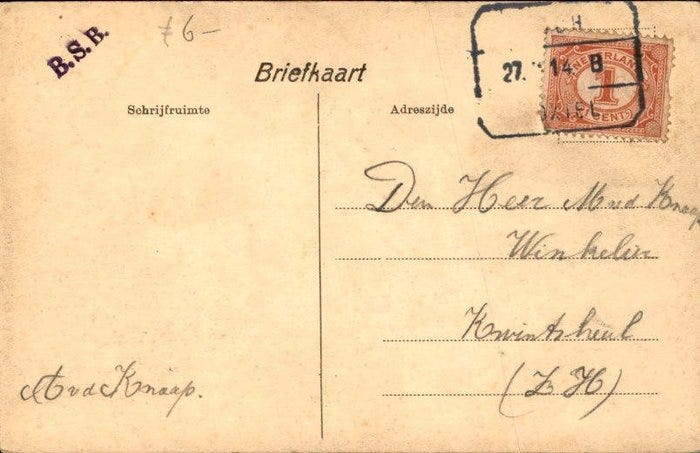 B.S.B.
f 6—
Briefkaart
Schrijfruimte
Adreszijde
27 14 B
AXEL
NEDERLAND
1
CENT
Den Heer M vd Knaap
Winkelier
Kwintsheul
(Z H)
A vd Knaap.